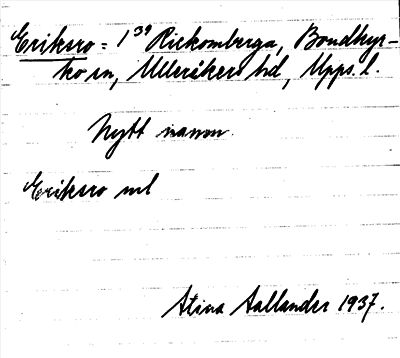 Eriksro = 1³⁹ Rickomberga, Bondkyr-
ko sn, Ulleråkers hd, Upps. l.
Nytt namn.
Eriksro ml
Stina Aallander 1937.